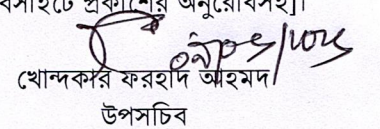 প্রকাশের অনুরোধসহ]।
খোন্দকার ফরহাদ আহমদ
উপসচিব